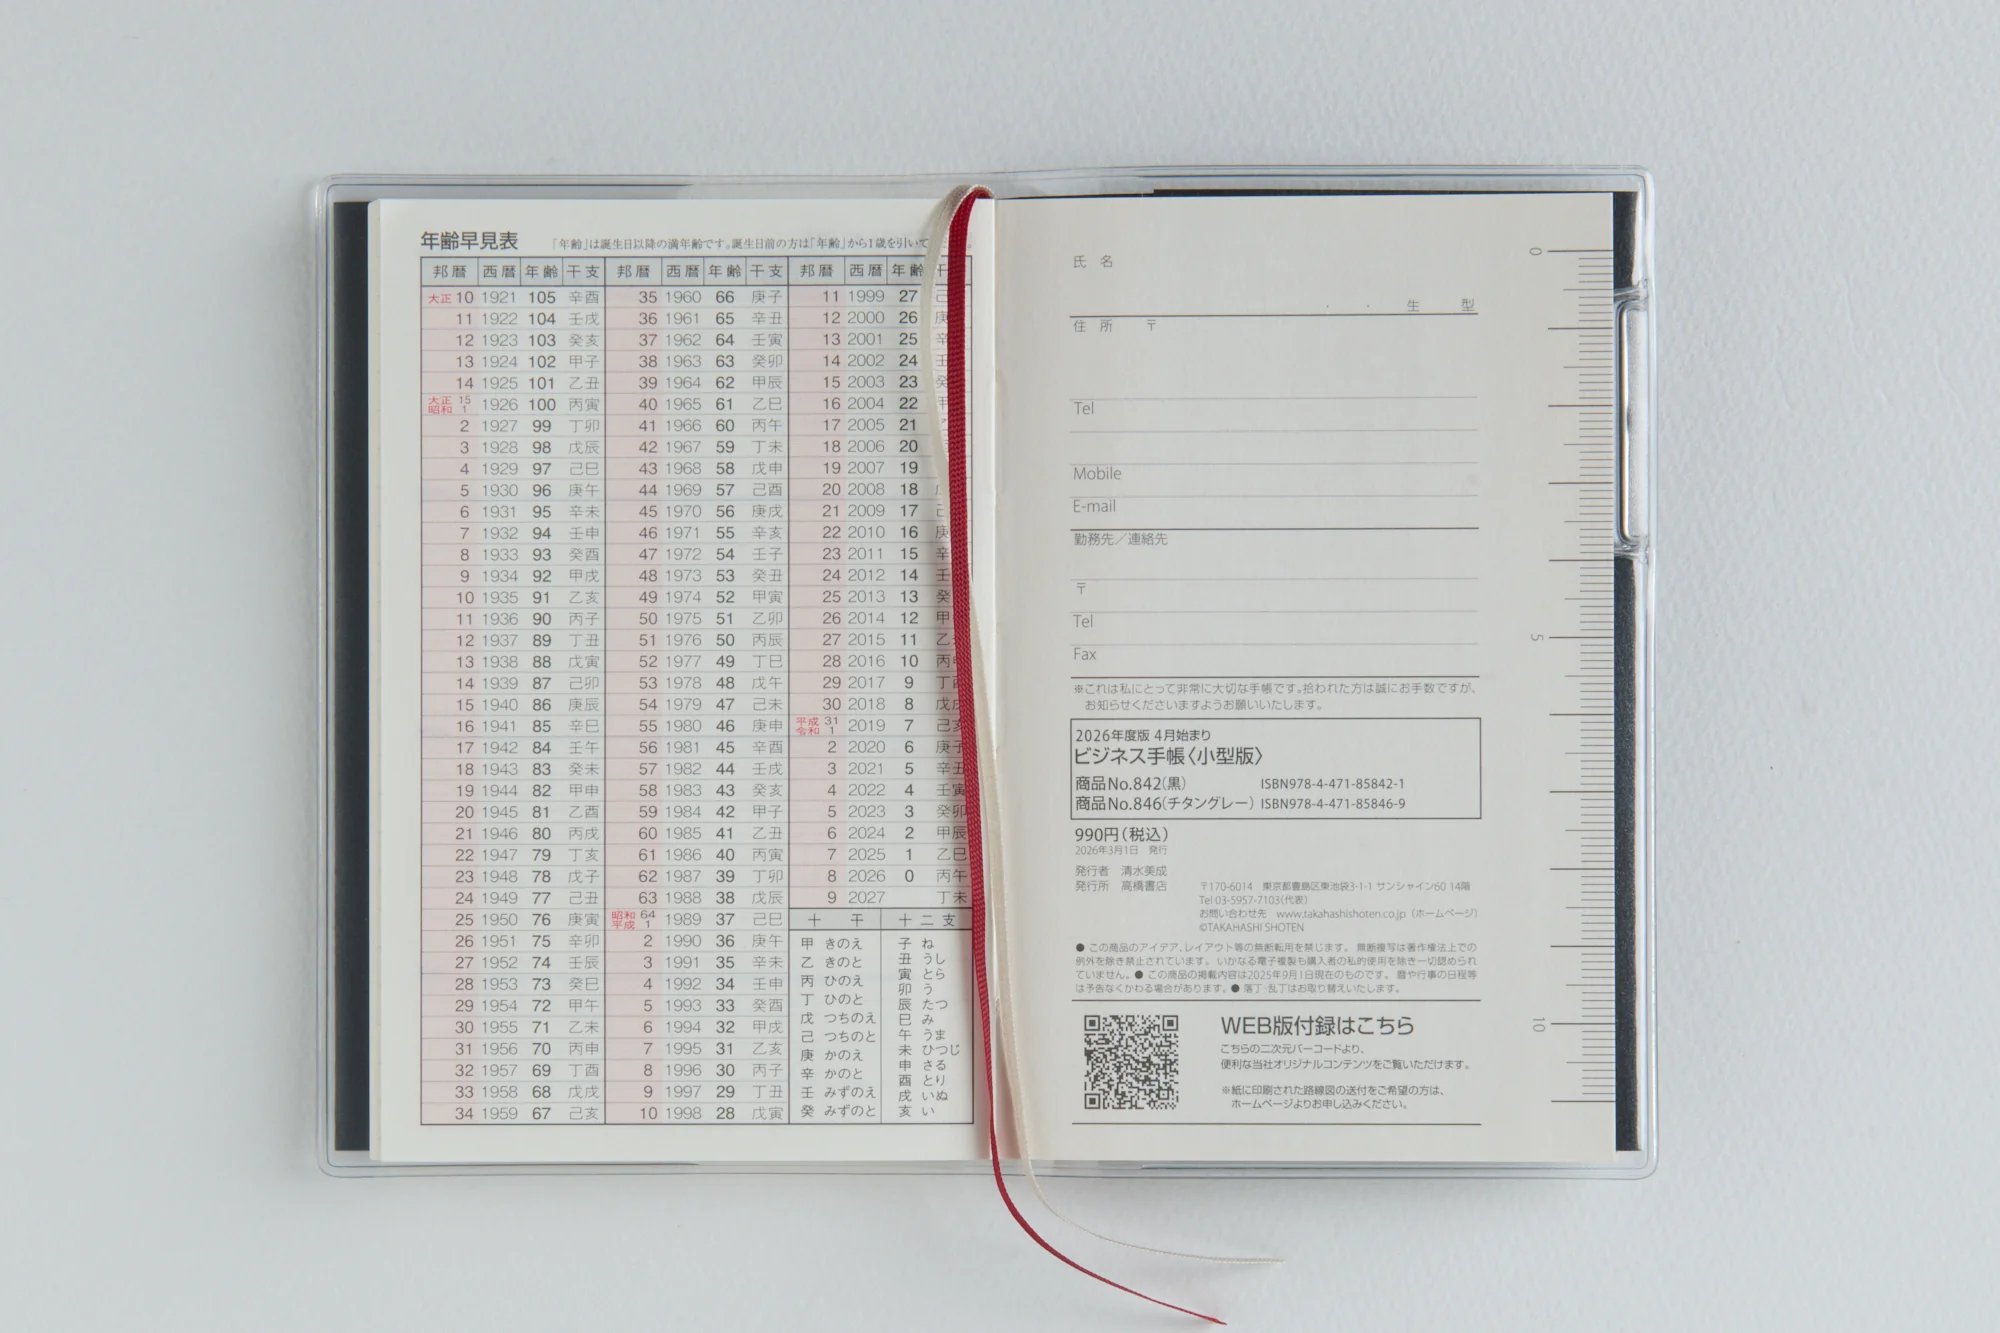 年齢早見表 「年齢」は誕生日以降の満年齢です。誕生日前の方は「年齢」から1歳を引いて
邦暦 西暦 年齢 干支
大正 10 1921 105 辛酉
11 1922 104 壬戌
12 1923 103 癸亥
13 1924 102 甲子
14 1925 101 乙丑
大正 15 昭和 1 1926 100 丙寅
2 1927 99 丁卯
3 1928 98 戊辰
4 1929 97 己巳
5 1930 96 庚午
6 1931 95 辛未
7 1932 94 壬申
8 1933 93 癸酉
9 1934 92 甲戌
10 1935 91 乙亥
11 1936 90 丙子
12 1937 89 丁丑
13 1938 88 戊寅
14 1939 87 己卯
15 1940 86 庚辰
16 1941 85 辛巳
17 1942 84 壬午
18 1943 83 癸未
19 1944 82 甲申
20 1945 81 乙酉
21 1946 80 丙戌
22 1947 79 丁亥
23 1948 78 戊子
24 1949 77 己丑
25 1950 76 庚寅
26 1951 75 辛卯
27 1952 74 壬辰
28 1953 73 癸巳
29 1954 72 甲午
30 1955 71 乙未
31 1956 70 丙申
32 1957 69 丁酉
33 1958 68 戊戌
34 1959 67 己亥
邦暦 西暦 年齢 干支
35 1960 66 庚子
36 1961 65 辛丑
37 1962 64 壬寅
38 1963 63 癸卯
39 1964 62 甲辰
40 1965 61 乙巳
41 1966 60 丙午
42 1967 59 丁未
43 1968 58 戊申
44 1969 57 己酉
45 1970 56 庚戌
46 1971 55 辛亥
47 1972 54 壬子
48 1973 53 癸丑
49 1974 52 甲寅
50 1975 51 乙卯
51 1976 50 丙辰
52 1977 49 丁巳
53 1978 48 戊午
54 1979 47 己未
55 1980 46 庚申
56 1981 45 辛酉
57 1982 44 壬戌
58 1983 43 癸亥
59 1984 42 甲子
60 1985 41 乙丑
61 1986 40 丙寅
62 1987 39 丁卯
63 1988 38 戊辰
昭和 64 平成 1 1989 37 己巳
2 1990 36 庚午
3 1991 35 辛未
4 1992 34 壬申
5 1993 33 癸酉
6 1994 32 甲戌
7 1995 31 乙亥
8 1996 30 丙子
9 1997 29 丁丑
10 1998 28 戊寅
邦暦 西暦 年齢
11 1999 27
12 2000 26
13 2001 25
14 2002 24
15 2003 23
16 2004 22
17 2005 21
18 2006 20
19 2007 19
20 2008 18
21 2009 17
22 2010 16
23 2011 15
24 2012 14
25 2013 13
26 2014 12
27 2015 11
28 2016 10 丙申
29 2017 9 丁酉
30 2018 8 戊戌
平成 31 令和 1 2019 7 己亥
2 2020 6 庚子
3 2021 5 辛丑
4 2022 4 壬寅
5 2023 3 癸卯
6 2024 2 甲辰
7 2025 1 乙巳
8 2026 0 丙午
9 2027 丁未
十干
甲 きのえ
乙 きのと
丙 ひのえ
丁 ひのと
戊 つちのえ
己 つちのと
庚 かのえ
辛 かのと
壬 みずのえ
癸 みずのと
十二支
子 ね
丑 うし
寅 とら
卯 う
辰 たつ
巳 み
午 うま
未 ひつじ
申 さる
酉 とり
戌 いぬ
亥 い
氏名
・ ・ 生 型
住所 〒
Tel
Mobile
E-mail
勤務先／連絡先
〒
Tel
Fax
※これは私にとって非常に大切な手帳です。拾われた方は誠にお手数ですが、
お知らせくださいますようお願いいたします。
2026年度版 4月始まり
ビジネス手帳〈小型版〉
商品No.842(黒) ISBN978-4-471-85842-1
商品No.846(チタングレー) ISBN978-4-471-85846-9
990円(税込)
2026年3月1日 発行
発行者 清水美成
発行所 高橋書店 〒170-6014 東京都豊島区東池袋3-1-1 サンシャイン60 14階
Tel 03-5957-7103(代表)
お問い合わせ先 www.takahashishoten.co.jp（ホームページ）
©TAKAHASHI SHOTEN
● この商品のアイデア、レイアウト等の無断転用を禁じます。 無断複写は著作権法上での
例外を除き禁止されています。 いかなる電子複製も購入者の私的使用を除き一切認められ
ていません。● この商品の掲載内容は2025年9月1日現在のものです。 暦や行事の日程等
は予告なくかわる場合があります。● 落丁・乱丁はお取り替えいたします。
WEB版付録はこちら
こちらの二次元バーコードより、
便利な当社オリジナルコンテンツをご覧いただけます。
※紙に印刷された路線図の送付をご希望の方は、
ホームページよりお申し込みください。
0
5
10